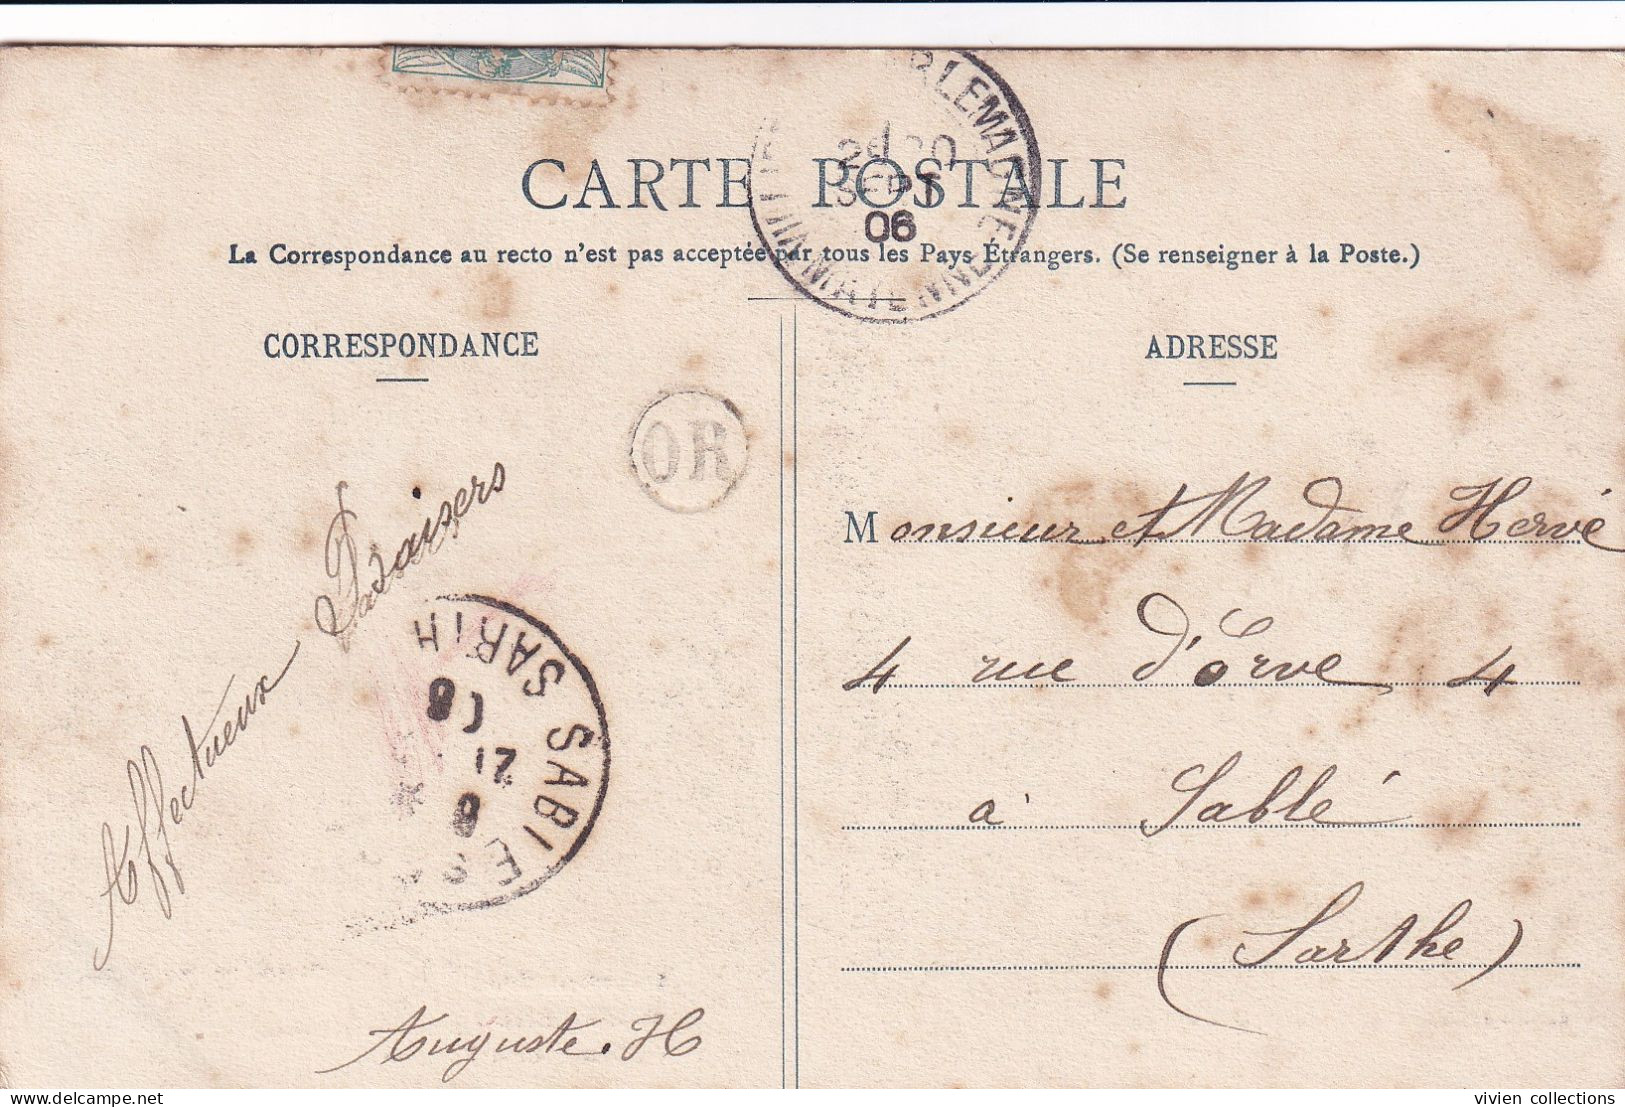 CARTE POSTALE
La Correspondance au recto n'est pas acceptée par tous les Pays Étrangers. (Se renseigner à la Poste.)
CORRESPONDANCE
ADRESSE
20
SEPT
06
OR
Affectueux Baisers
Auguste. H
SABLE S SARTH
21
Monsieur et Madame Hervé
4 rue d'Erve 4
à Sablé
(Sarthe)
delcampe.net
vivien collections